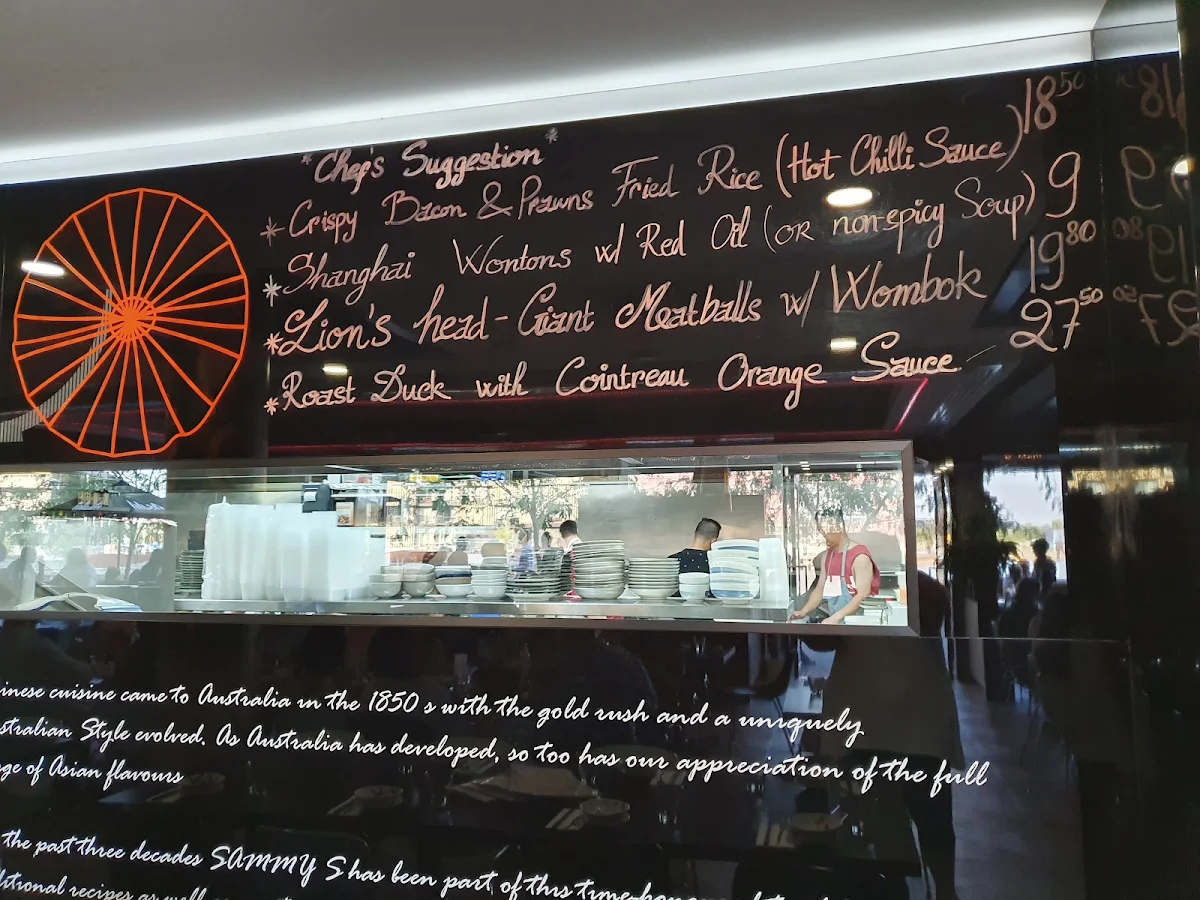 "Chef's Suggestion"
* Crispy Bacon & Prawns Fried Rice (Hot Chilli Sauce) 18 50
* Shanghai Wontons w/ Red Oil (or non-spicy Soup) 9
* Lion's head - Giant Meatballs w/ Wombok 19 80
* Roast Duck with Cointreau Orange Sauce 27 50
inese cuisine came to Australia in the 1850s with the gold rush and a uniquely
stralian Style evolved. As Australia has developed, so too has our appreciation of the full
ge of Asian flavours
the past three decades SAMMY S has been part of this
ditional recipes as well